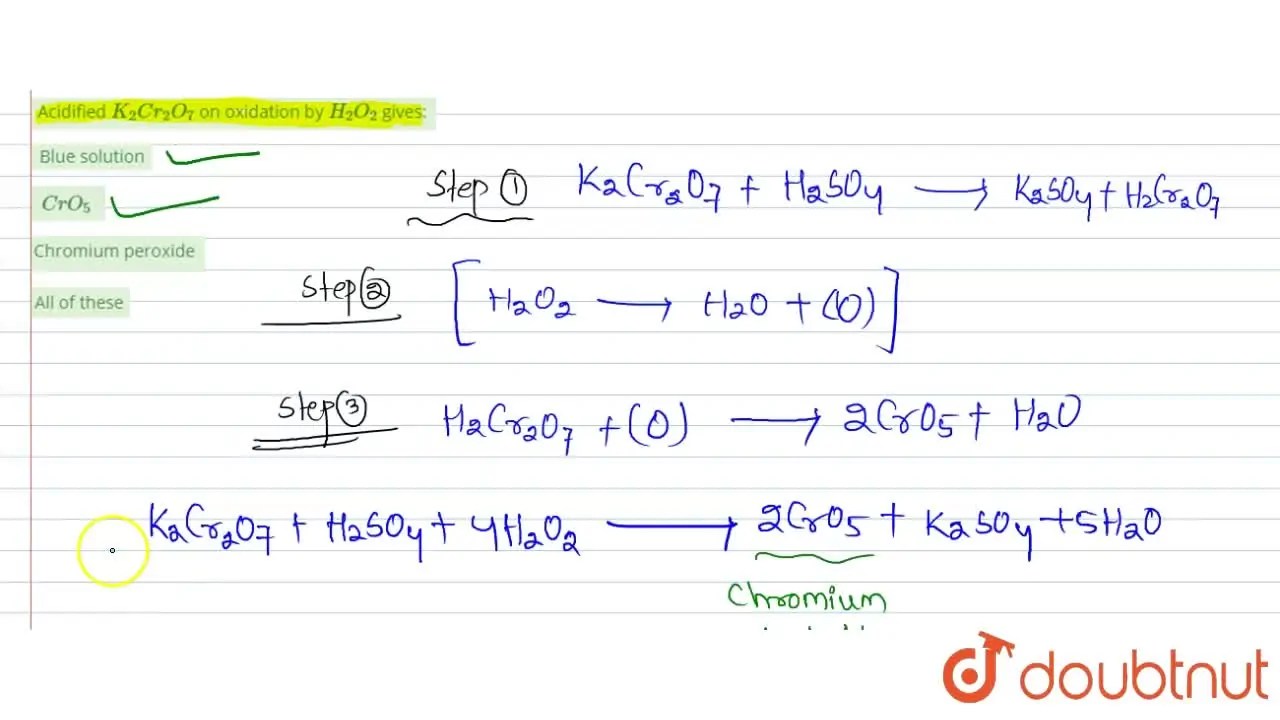 Acidified K₂Cr₂O₇ on oxidation by H₂O₂ gives:
Blue solution
CrO₅
Chromium peroxide
All of these
Step ① K₂Cr₂O₇ + H₂SO₄ → K₂SO₄ + H₂Cr₂O₇
Step ② [H₂O₂ → H₂O + (O)]
Step ③ H₂Cr₂O₇ + (O) → 2CrO₅ + H₂O
K₂Cr₂O₇ + H₂SO₄ + 4H₂O₂ → 2CrO₅ + K₂SO₄ + 5H₂O
Chromium
doubtnut